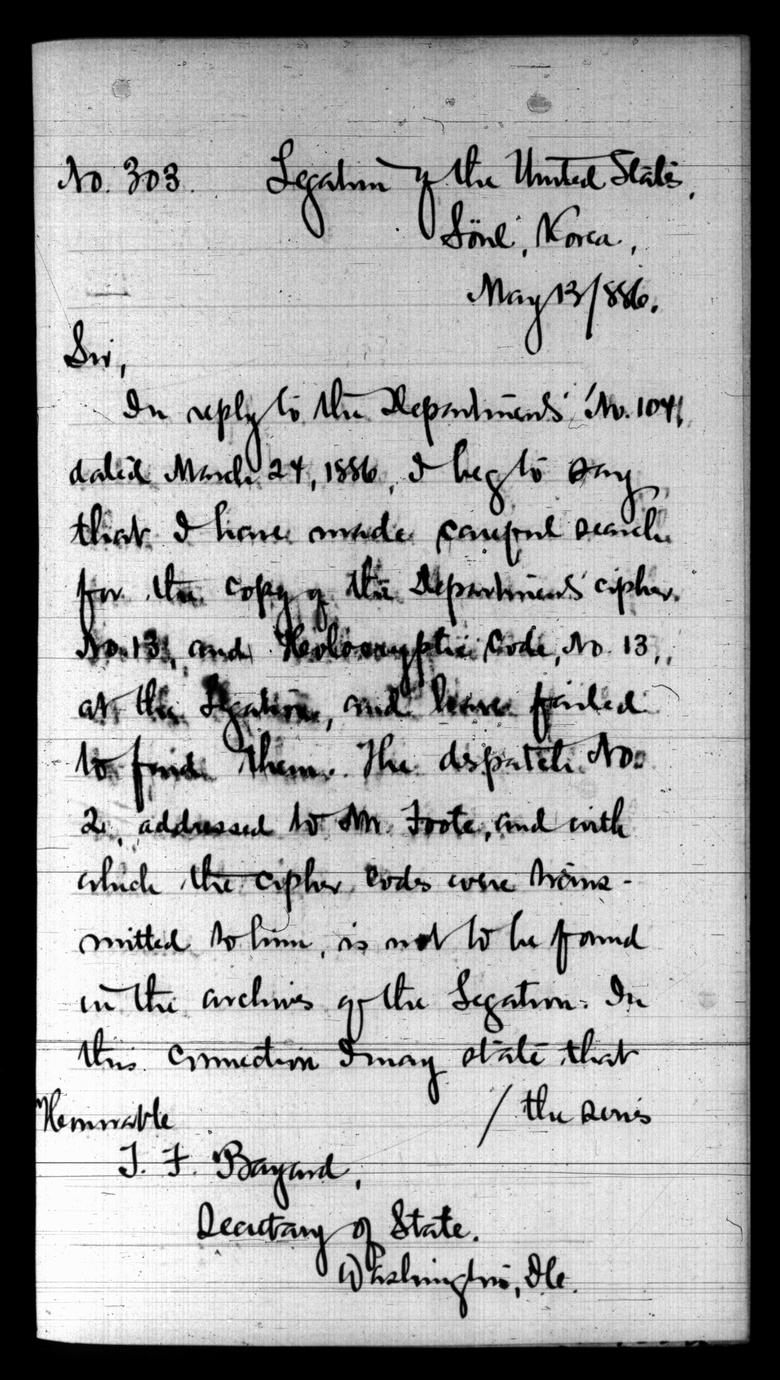 No. 303. Legation of the United States,
Söul, Korea,
May 13/886.
Sir,
In reply to the Departments' No. 104,
dated March 24, 1886, I beg to say
that I have made careful search
for the copy of the Departments' cipher
No. 13, and Holocryptic Code, No. 13,
at the Legation, and have failed
to find them. The dispatch No.
2, addressed to Mr. Foote, and with
which the cipher codes were trans-
mitted to him, is not to be found
in the archives of the Legation. In
this connection I may state that
/ the series
Honorable
T. F. Bayard,
Secretary of State.
Washington, D.C.